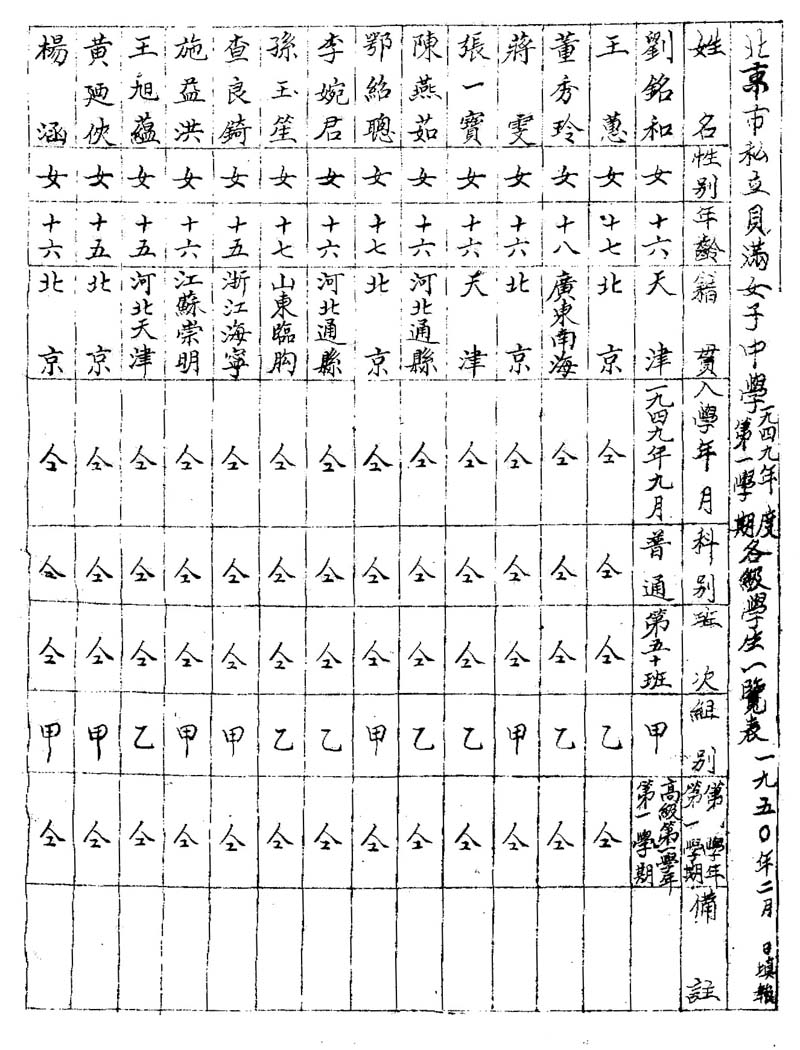 北京市私立貝滿女子中學一九四九年度第一學期各級學生一覽表 一九五〇年二月 日填報
姓名 性別 年齡 籍貫 入學年月 科別 班次 組別 第 學年第一學期 備註
劉銘和 女 十六 天津 一九四九年九月 普通 第五十班 甲 高級第一學年第一學期
王蕙 女 十七 北京 仝 仝 仝 乙 仝
董秀玲 女 十八 廣東南海 仝 仝 仝 乙 仝
蔣雯 女 十六 北京 仝 仝 仝 甲 仝
張一寶 女 十六 天津 仝 仝 仝 乙 仝
陳燕茹 女 十六 河北通縣 仝 仝 仝 乙 仝
鄂紹聰 女 十七 北京 仝 仝 仝 甲 仝
李婉君 女 十六 河北通縣 仝 仝 仝 乙 仝
孫玉笙 女 十七 山東臨朐 仝 仝 仝 乙 仝
查良錡 女 十五 浙江海寧 仝 仝 仝 甲 仝
施益洪 女 十六 江蘇崇明 仝 仝 仝 甲 仝
王旭蘊 女 十五 河北天津 仝 仝 仝 乙 仝
黃廼俠 女 十五 北京 仝 仝 仝 甲 仝
楊涵 女 十六 北京 仝 仝 仝 甲 仝